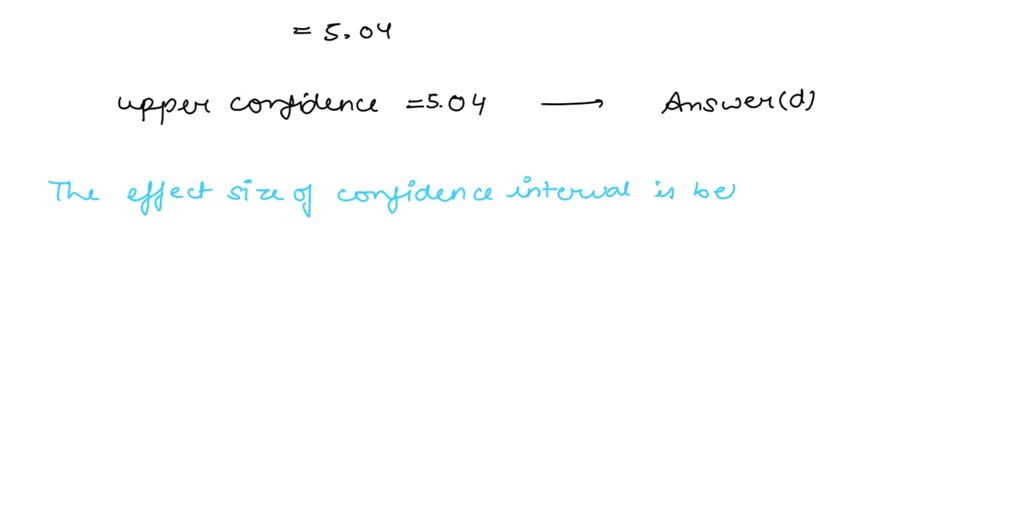 = 5.04
upper confidence = 5.04 → Answer(d)
The effect size of confidence interval is be